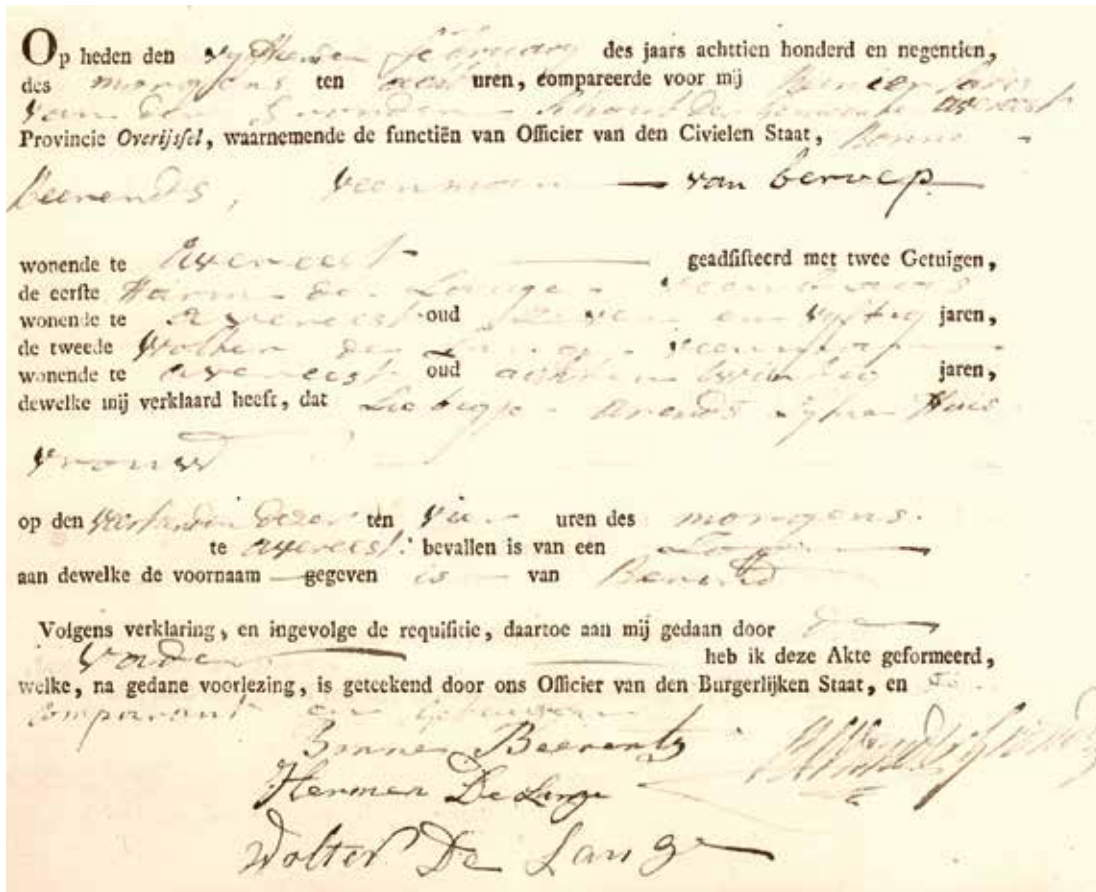 Op heden den vyftienden february des jaars achttien honderd en negentien,
des morgens ten uren, compareerde voor mij
van der Gronden Schout der Gemeente avereest
Provincie Overijssel, waarnemende de functiën van Officier van den Civielen Staat, Bonne
beerends, veenman van beroep
wonende te avereest geadsisteerd met twee Getuigen,
de eerste Harm de Lange
wonende te avereest oud zeven en vyftig jaren,
de tweede Wolter de Lange
wonende te avereest oud acht en twintig jaren,
dewelke mij verklaard heeft, dat Arends zyne Huis
vrouw
op den veertienden dezer ten vier uren des morgens
te avereest bevallen is van een Zoon
aan dewelke de voornaam gegeven is van Berend
Volgens verklaring, en ingevolge de requisitie, daartoe aan mij gedaan door de
vader heb ik deze Akte geformeerd,
welke, na gedane voorlezing, is geteekend door ons Officier van den Burgerlijken Staat, en
comparant en getuigen
Bonne Beerents
Hermen De Lange
Wolter De Lange